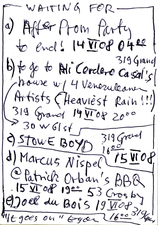 WAITING FOR
a) After Prom Party
to end! 14 VI 08 0400
319 Grand
b) to go to Ali Cordero Casal's
house w/ 4 Venezuelean
Artists (Heaviest Rain!!!)
319 Grand 14 VI 08 2000
→ 30 W 61st
c) STOWE BOYD 319 Grand
1600 15 VI 08
d) Marcus Nispel
@ Patrick Orban's BBQ
15 VI 08 1900 53 Crosby
e) Joel du Bois 19 VI 08
"It goes on" 1600 319 Grand